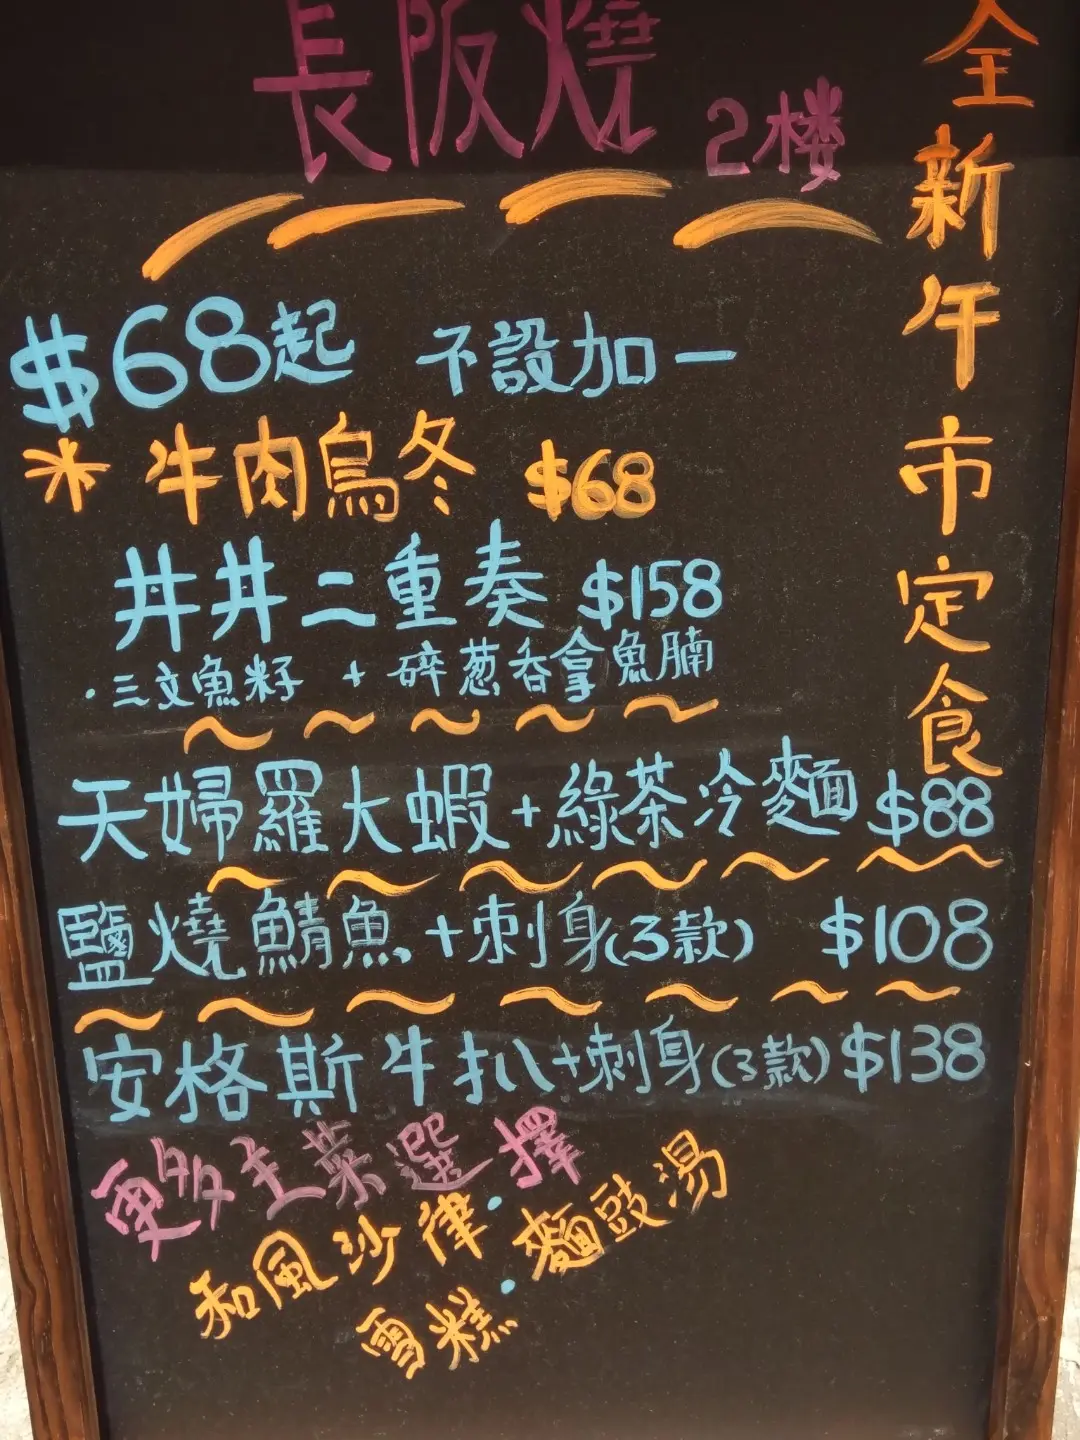 長阪燒 2楼
全新午市定食
$68起 不設加一
* 牛肉烏冬 $68
丼丼二重奏 $158
·三文魚籽 + 碎葱吞拿魚腩
天婦羅大蝦+綠茶冷麵 $88
鹽燒鯖魚+刺身(3款) $108
安格斯牛扒+刺身(3款) $138
更多主菜選擇
和風沙律·麵豉湯
雪糕·